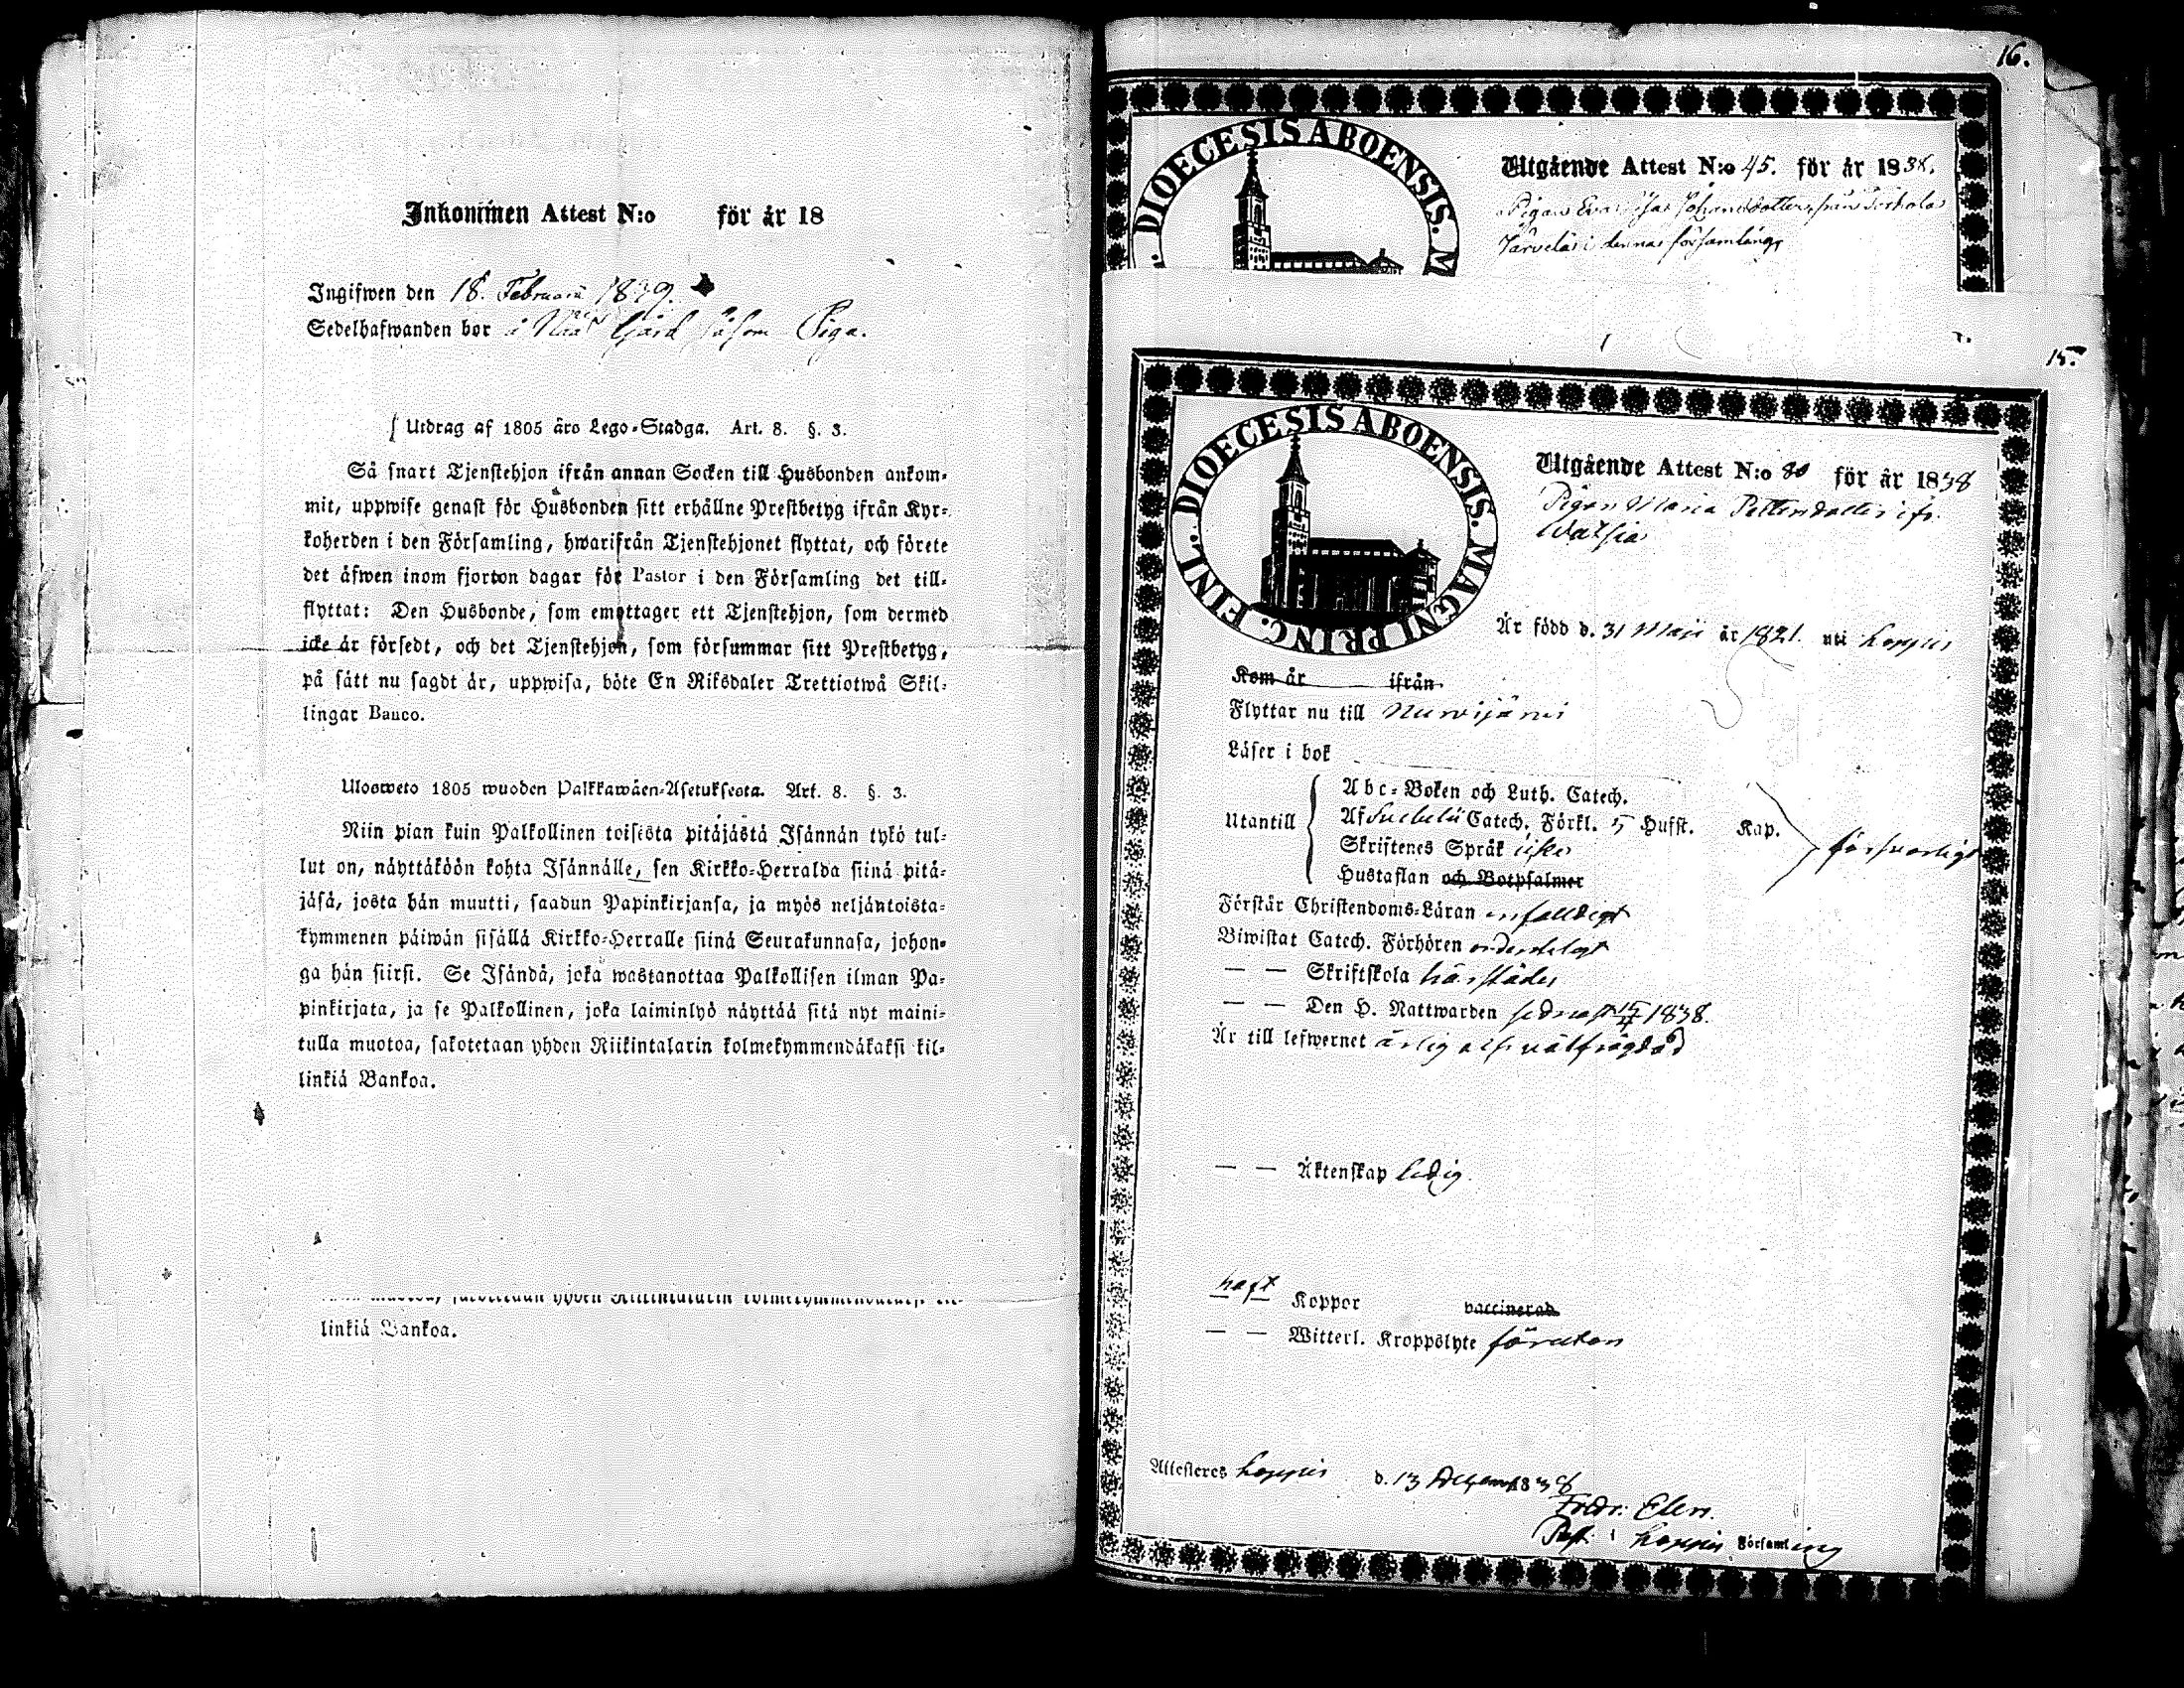 Inkommen Attest N:o för år 18
Ingifwen den 18. Februarii 1839.
Sedelhafwanden bor å Gård såsom Piga.
Utdrag af 1805 års Lego-Stadga. Art. 8. §. 3.
Så snart Tjenstehjon ifrån annan Socken till Husbonden ankom-
mit, uppwise genast för Husbonden sitt erhållne Prestbetyg ifrån Kyr-
koherden i den Församling, hwarifrån Tjenstehjonet flyttat, och förete
det äfwen inom fjorton dagar för Pastor i den Församling det till-
flyttat: Den Husbonde, som emottager ett Tjenstehjon, som dermed
icke är försedt, och det Tjenstehjon, som försummar sitt Prestbetyg,
på sätt nu sagdt är, uppwisa, böte En Riksdaler Trettiotwå Skil-
lingar Banco.
Ulosweto 1805 wuoden Palkkawäen-Asetuksesta. Art. 8. §. 3.
Niin pian kuin Palkollinen toisesta pitäjästä Isännän tykö tul-
lut on, näyttäköön kohta Isännälle, sen Kirkko-Herralda siinä pitä-
jäsä, josta hän muutti, saadun Papinkirjansa, ja myös neljäntoista-
kymmenen päiwän sisällä Kirkko-Herralle siinä Seurakunnasa, johon-
ga hän siirsi. Se Isändä, joka wastanottaa Palkollisen ilman Pa-
pinkirjata, ja se Palkollinen, joka laiminlyö näyttää sitä nyt maini-
tulla muotoa, sakotetaan yhden Riikintalarin kolmekymmendäkaksi kil-
linkiä Bankoa.
linkiä Bankoa.
16.
DIOECESIS ABOENSIS. M
Utgående Attest N:o 45. för år 1838.
Pigan Eva Johansdotter, från
Järvelä i denna församling,
15.
DIOECESIS ABOENSIS. MAGNI PRINC. FINL.
Utgående Attest N:o 80 för år 1838
Pigan Maria Pettersdotter ifr.
Watsia
Är född d. 31 Maji år 1821. uti Loppis
Kom år ifrån
Flyttar nu till Nurmijärvi
Läser i bok
Utantill
Abc-Boken och Luth. Catech.
Af Svebelii Catech. Förkl. 5 Hufst. Kap.
Skriftenes Språk
Hustaflan och Botpsalmer
försvarligt
Förstår Christendoms-Läran enfaldigt
Biwistat Catech. Förhören ordentligt
— — Skriftskola härstädes
— — Den H. Nattwarden sednast 1838.
Är till lefwernet ärlig och välfrägdad
— — Äktenskap ledig.
haft
— — Koppor vaccinerad
— — Witterl. Kroppslyte förutan
Attesteres Loppis d. 13 Decemb 1838
Fredr. Elen.
Past. i Loppis Församling